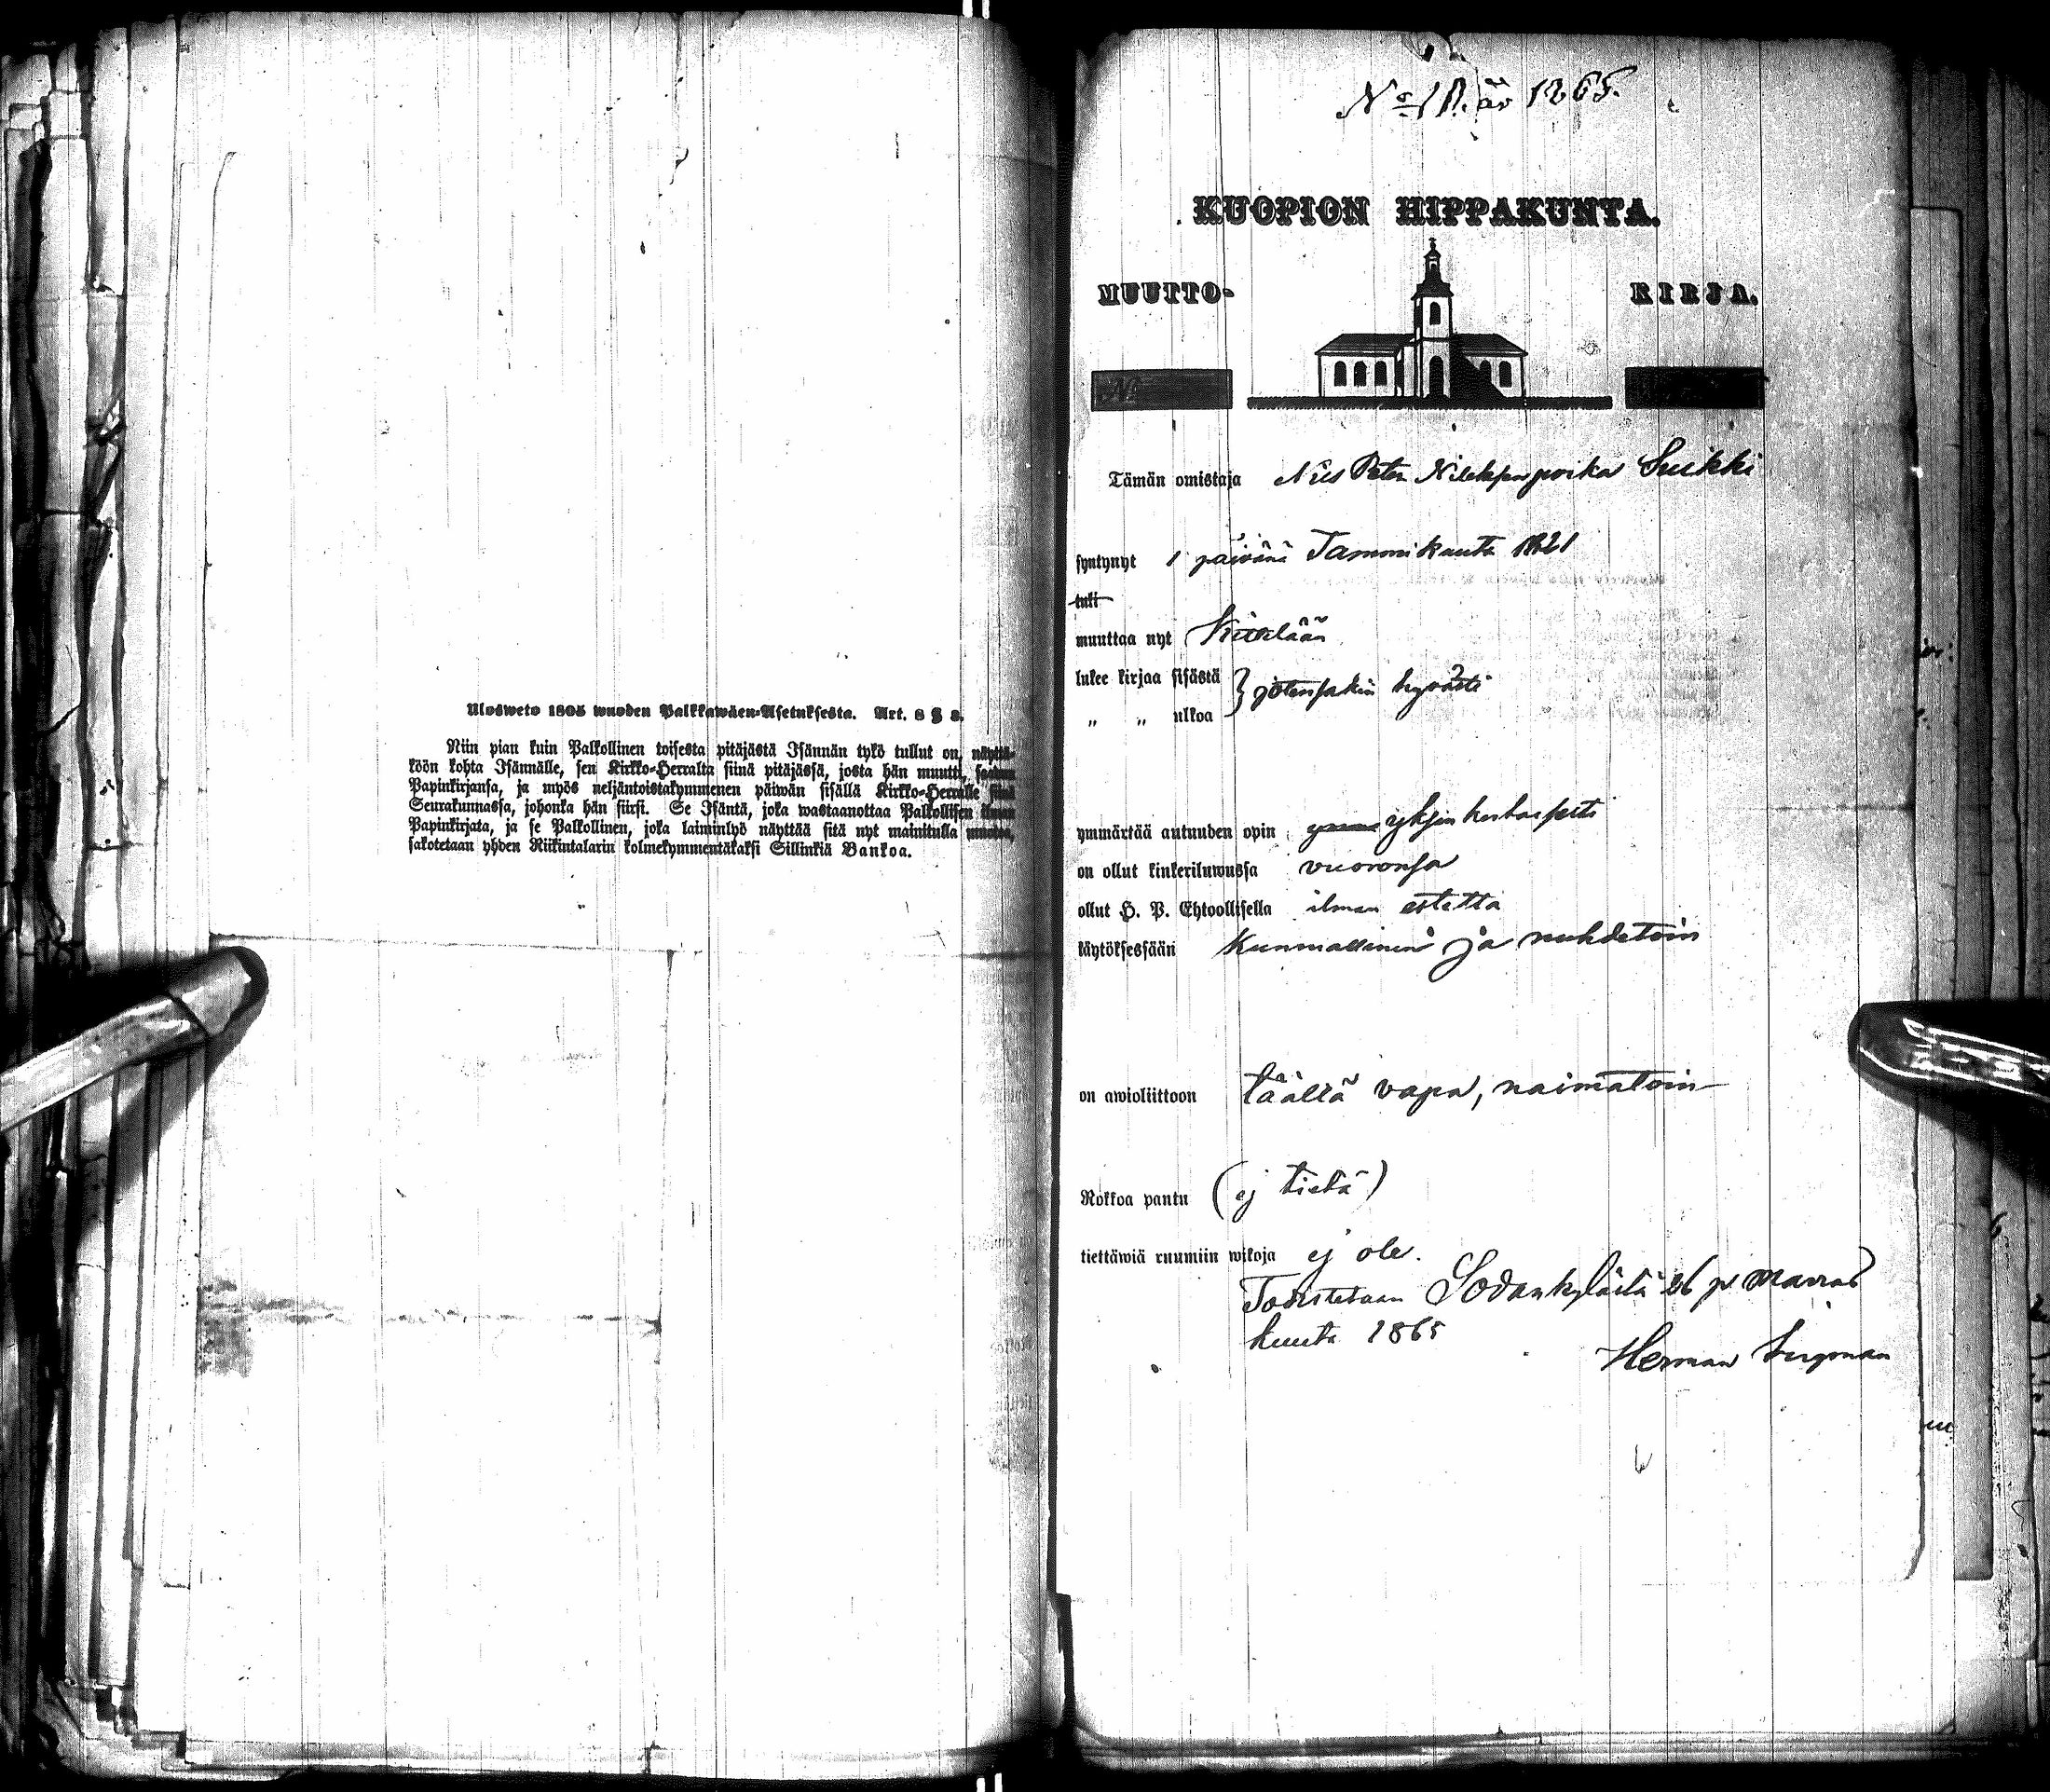 Ulosweto 1805 wuoden Palkkawäen-Asetuksesta. Art. 8 § 8.
Niin pian kuin Palkollinen toisesta pitäjästä Isännän tykö tullut on, näyttä-
köön kohta Isännälle, sen Kirkko-Herralta siinä pitäjässä, josta hän muutti, saadun
Papinkirjansa, ja myös neljäntoistakymmenen päiwän sisällä Kirkko-Herralle siinä
Seurakunnassa, johonka hän siirsi. Se Isäntä, joka wastaanottaa Palkollisen ilman
Papinkirjata, ja se Palkollinen, joka laiminlyö näyttää sitä nyt mainitulla muotoa,
sakotetaan yhden Riikintalarin kolmekymmentäkaksi Sillinkiä Bankoa.
No 18. år 1865.
KUOPION HIPPAKUNTA.
MUUTTO- KIRJA.
No
Tämän omistaja Nils Peter poika
syntynyt 1 päivänä Tammikuuta 1821
tuli
muuttaa nyt Kittilään
lukee kirjaa sisästä } jotensakin hyvästi
„ „ ulkoa
ymmärtää autuuden opin yksinkertaisesti
on ollut kinkeriluwussa vuoronsa
ollut H. P. Ehtoollisella ilman estettä
käytöksessään kunniallinen ja nuhdetoin
on awioliittoon täällä vapa, naimatoin
Rokkoa pantu (ej tietä)
tiettäwiä ruumiin wikoja ej ole.
Todistetaan Sodankylästä 26 p marras
kuuta 1865
Herman